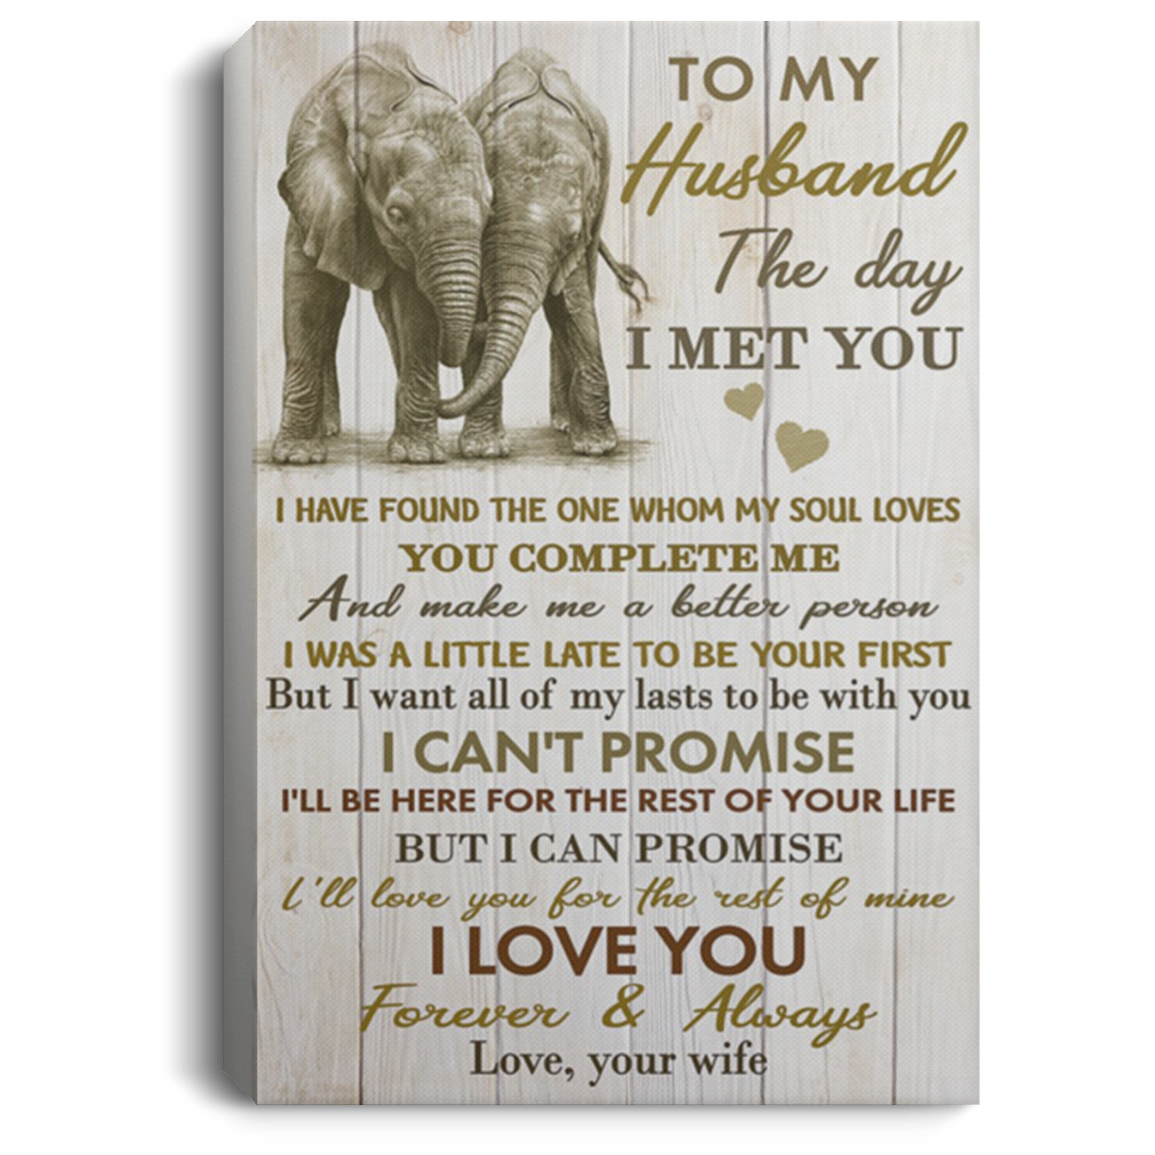 TO MY
Husband
The day
I MET YOU
I HAVE FOUND THE ONE WHOM MY SOUL LOVES
YOU COMPLETE ME
And make me a better person
I WAS A LITTLE LATE TO BE YOUR FIRST
But I want all of my lasts to be with you
I CAN'T PROMISE
I'LL BE HERE FOR THE REST OF YOUR LIFE
BUT I CAN PROMISE
I'll love you for the rest of mine
I LOVE YOU
Forever & Always
Love, your wife